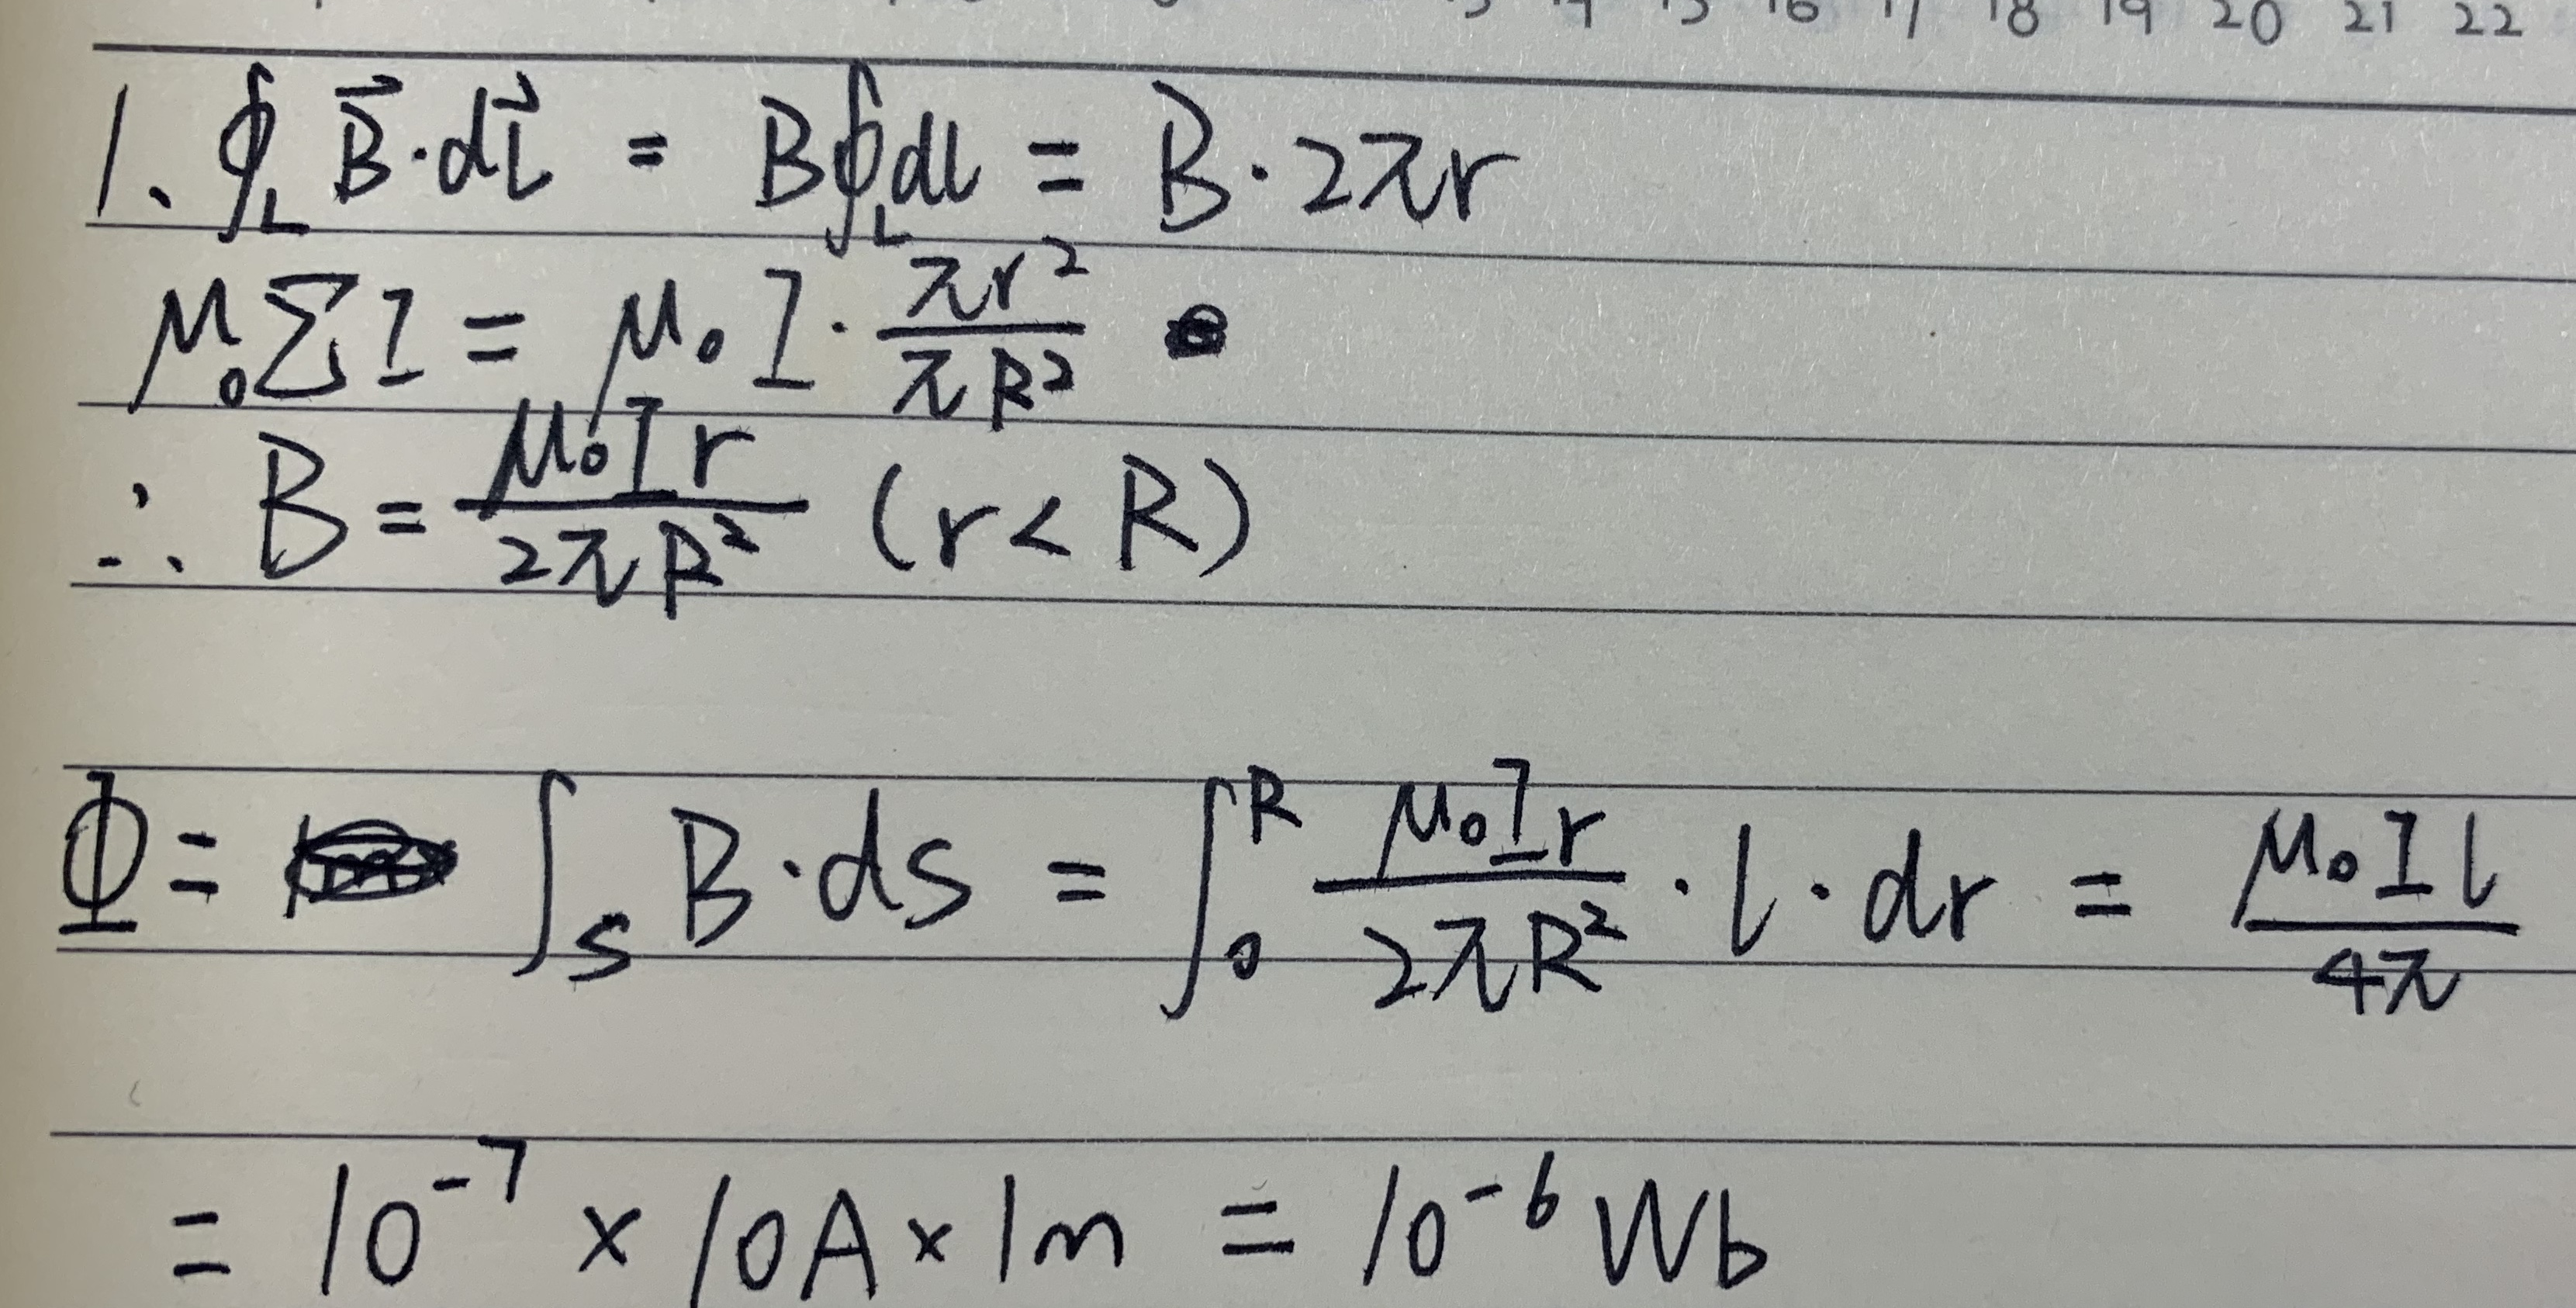 15 16 17 18 19 20 21 22
1、∮_L B⃗·dl⃗ = B∮_L dl = B·2πr
μ₀∑I = μ₀I·πr²/πR²
∴ B = μ₀Ir/2πR² (r < R)
Φ = ∫_S B·ds = ∫₀^R μ₀Ir/2πR² · l · dr = μ₀Il/4π
= 10⁻⁷ × 10A × 1m = 10⁻⁶ Wb